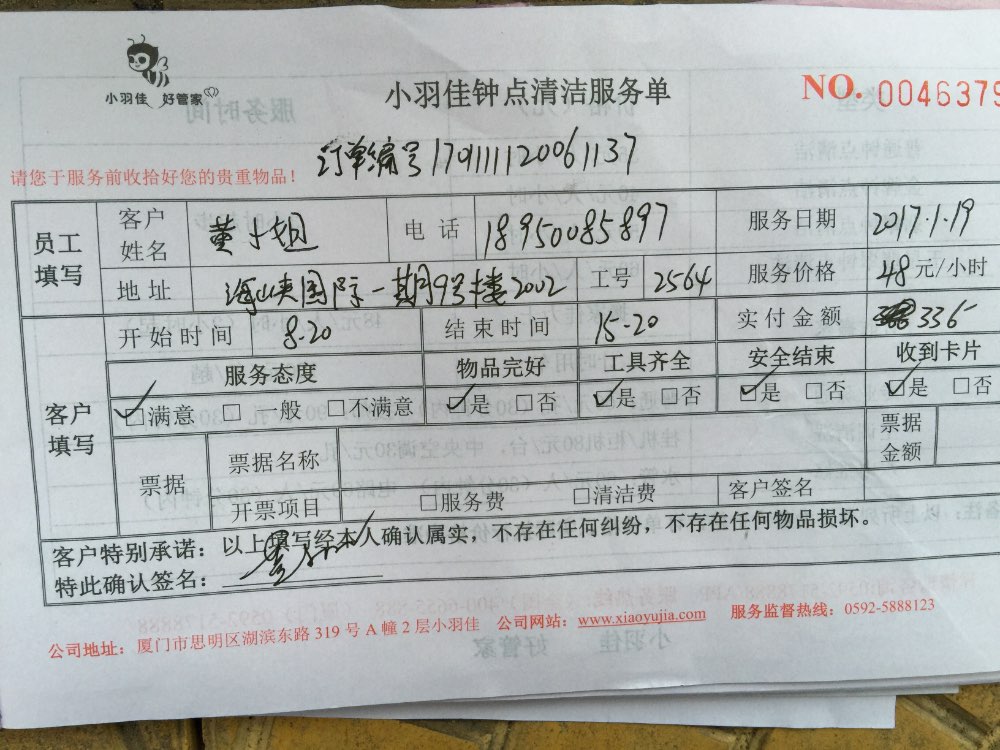 小羽佳 好管家
小羽佳钟点清洁服务单
NO. 0046379
订单编号170111120061137
请您于服务前收拾好您的贵重物品！
员工填写 客户姓名 黄小姐 电话 18950085897 服务日期 2017.1.19
地址 海峡国际一期9号楼2002 工号 2564 服务价格 48元/小时
开始时间 8.20 结束时间 15-20 实付金额 336
客户填写 服务态度 物品完好 工具齐全 安全结束 收到卡片
☑满意 □一般 □不满意 ☑是 □否 ☑是 □否 ☑是 □否 ☑是 □否
票据 票据名称 票据金额
开票项目 □服务费 □清洁费 客户签名
客户特别承诺：以上填写经本人确认属实，不存在任何纠纷，不存在任何物品损坏。
特此确认签名：
公司地址：厦门市思明区湖滨东路319号A幢2层小羽佳 公司网站：www.xiaoyujia.com 服务监督热线：0592-5888123